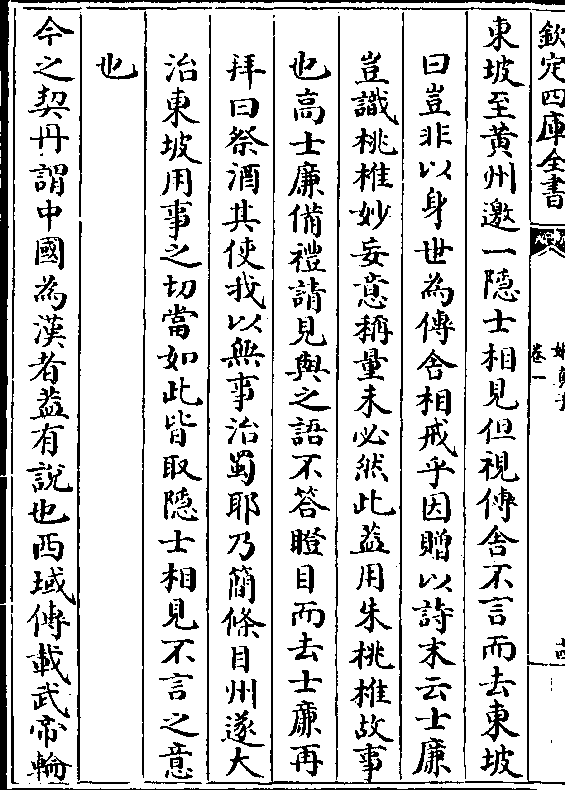 欽定四庫全書
卷一
東坡至黄州邀一隠士相見但視傳舍不言而去東坡
曰豈非以身世為傳舍相戒乎因贈以詩末云士廉
豈識桃椎妙妄意稱量未必然此葢用朱桃椎故事
也髙士廉備禮請見與之語不答瞪目而去士廉再
拜曰祭酒其使我以無事治蜀耶乃簡條目州遂大
治東坡用事之切當如此皆取隠士相見不言之意
也
今之契丹謂中國為漢者葢有說也西域傳載武帝輪